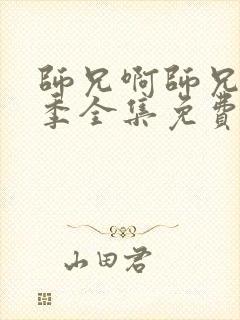 師兄啊師兄
季全集免費
山田君